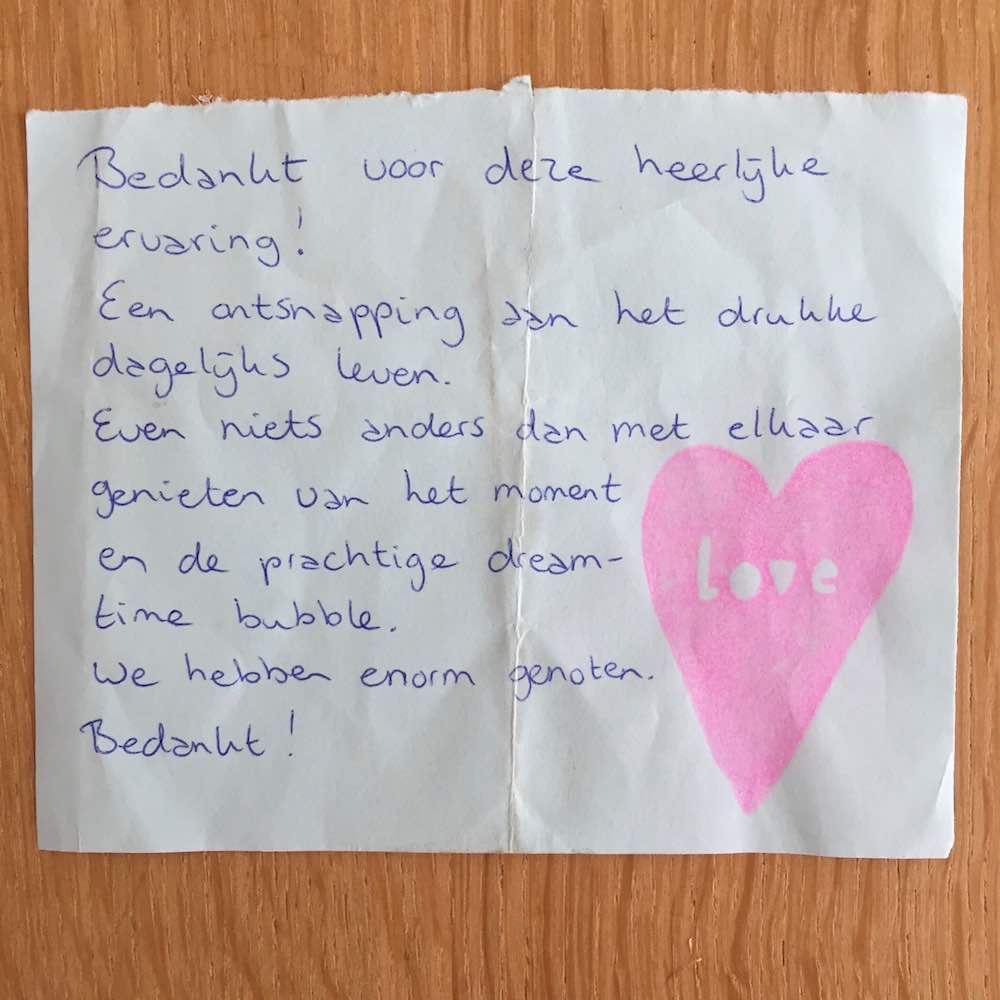 Bedankt voor deze heerlijke
ervaring!
Een ontsnapping aan het drukke
dagelijks leven.
Even niets anders dan met elkaar
genieten van het moment
en de prachtige dream-
time bubble.
We hebben enorm genoten.
Bedankt!
love